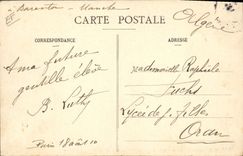 à Barenton - Manche
CARTE POSTALE
Algérie
CORRESPONDANCE
ADRESSE
A ma future
gentille élève
B. Luthy
Paris 18 août 10
Mademoiselle Raphaële
Fuchs
Lycée de j. filles
Oran